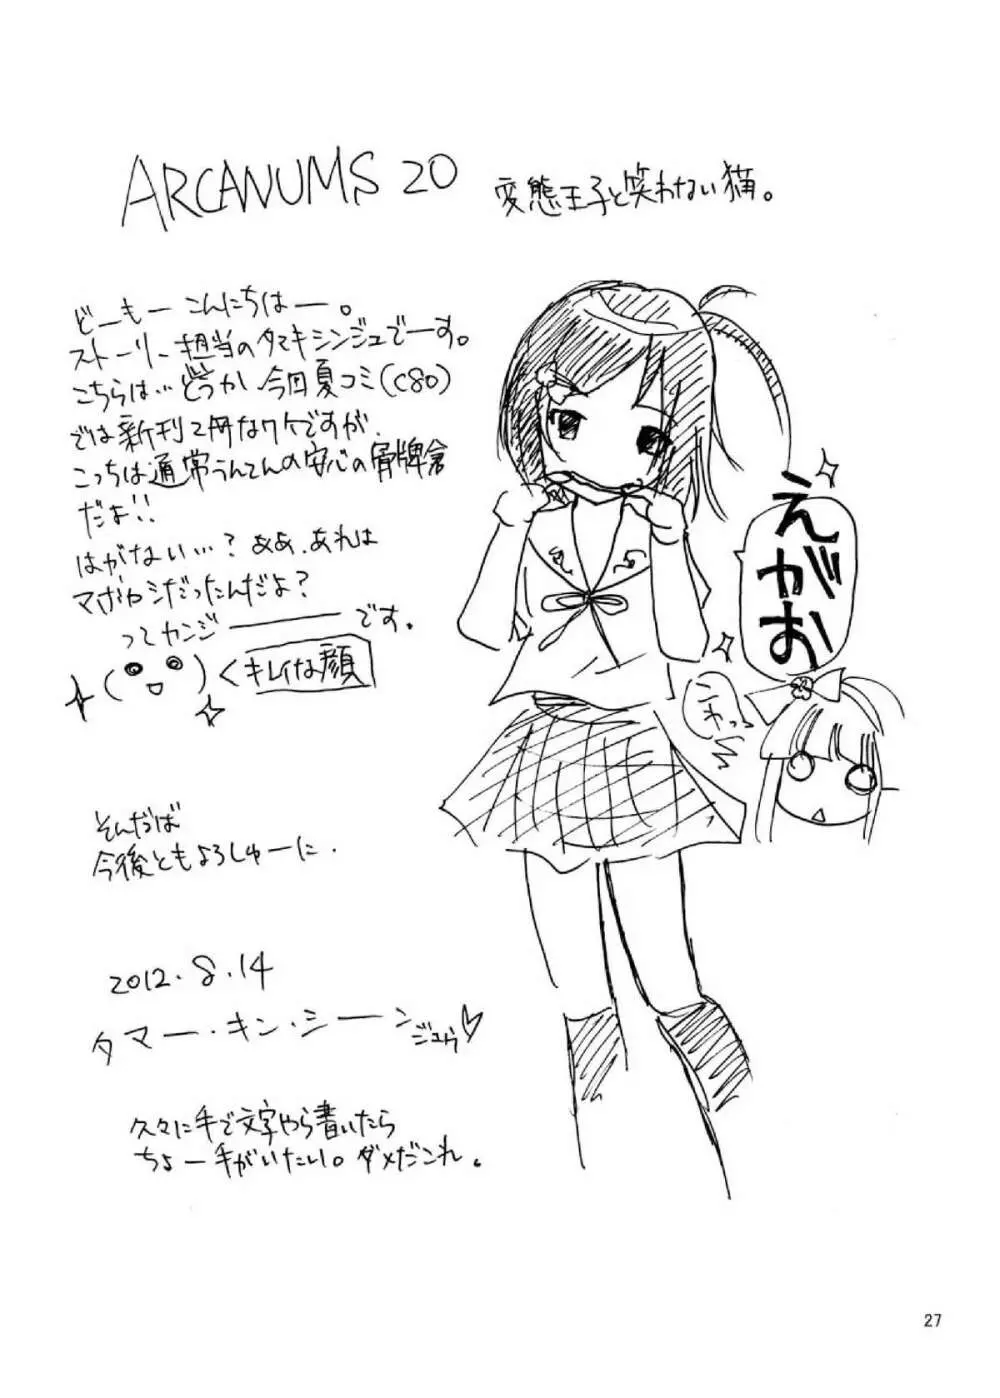 ARCANUMS 20
変態王子と笑わない猫。
どーもー こんにちはー。
ストーリー担当のタマキシンジュでーす。
こちらは…どうか 今回夏コミ(C80)
では新刊2冊なワケですが、
こっちは通常うんてんの安心の骨牌倉
だよ!!
はがない…? ああ、あれは
マボロシだったんだよ?
ってカンジーーーです。
キレイな顔
えがお
これっ
そんだば
今後ともよろしゅーに.
2012.8.14
タマー・キン・シーンジュウ♡
久々に手で文字やら書いたら
ちょー手がいたい。ダメだこれ。
27